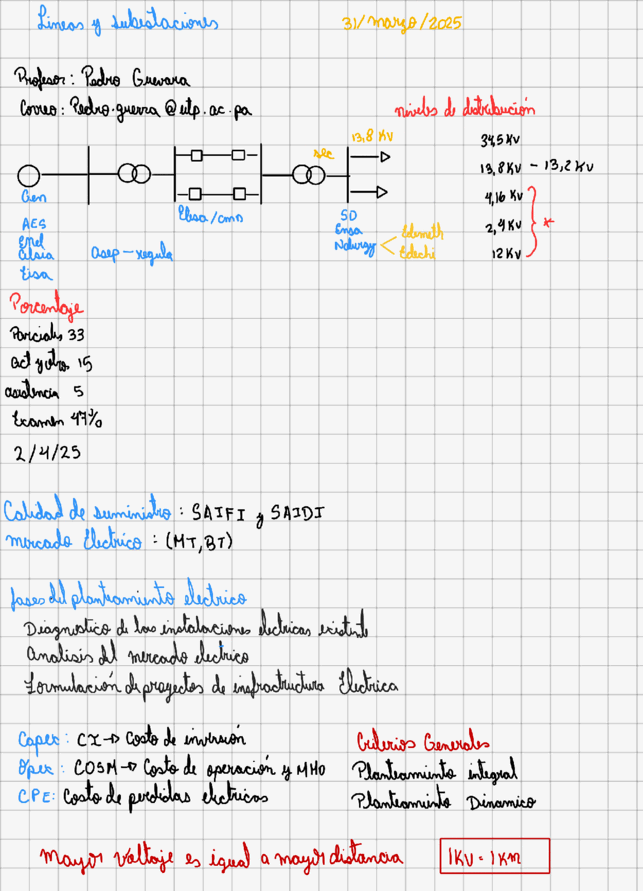 Lineas y subestaciones 31/marzo/2025
Profesor: Pedro Guevara
Correo: Pedro.guerra@utp.ac.pa
niveles de distribución
34,5 Kv
13,8 Kv - 13,2 Kv
4,16 Kv
2,4 Kv *
12 Kv
13,8 KV
sec
Gen
AES
Enel
Alsia
Eisa
asep - regula
Etesa/cmd
SD
Ensa
Naturgy
Edemeth
Edechi
Porcentaje
Parciales 33
act y otros 15
asistencia 5
Examen 47%
2/4/25
Calidad de suministro: SAIFI y SAIDI
mercado Electrico: (MT, BT)
fases del planteamiento electrico
Diagnostico de las instalaciones electricas existente
Analisis del mercado electrico
Formulación de proyectos de infractructura Electrica
Capex: CI → Costo de inversión
Opex: COSM → Costo de operación y MHO
CPE: Costo de perdidas electricas
Criterios Generales
Planteamiento integral
Planteamiento Dinamico
Mayor voltaje es igual a mayor distancia 1KV = 1KM